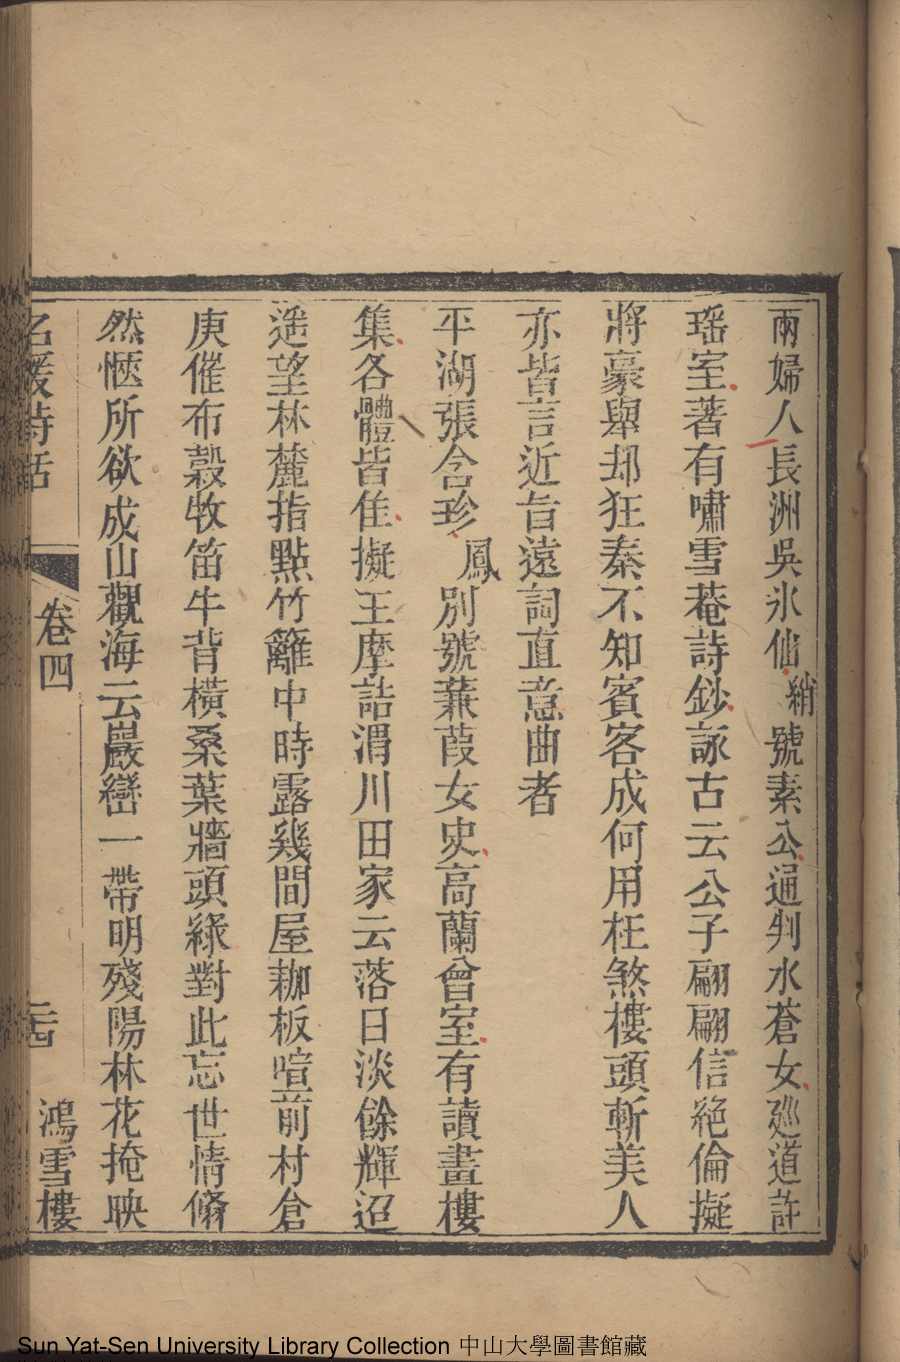 兩婦人長洲吳氷仙綃號素公通判水蒼女廵道許
瑶室著有嘯雪菴詩鈔詠古云公子翩翩信絕倫擬
將豪舉却狂秦不知賓客成何用枉煞樓頭斬美人
亦皆言近旨遠詞直意曲者
平湖張含珍鳳別號蒹葭女史高蘭曾室有讀畫樓
集各體皆佳擬王摩詰渭川田家云落日淡餘輝迢
遥望林麓指點竹籬中時露幾間屋耞板喧前村倉
庚催布穀牧笛牛背橫桑葉牆頭綠對此忘世情翛
然愜所欲成山觀海云巖巒一帶明殘陽林花掩映
名媛詩話
卷四
二四
鴻雪樓
Sun Yat-Sen University Library Collection 中山大學圖書館藏